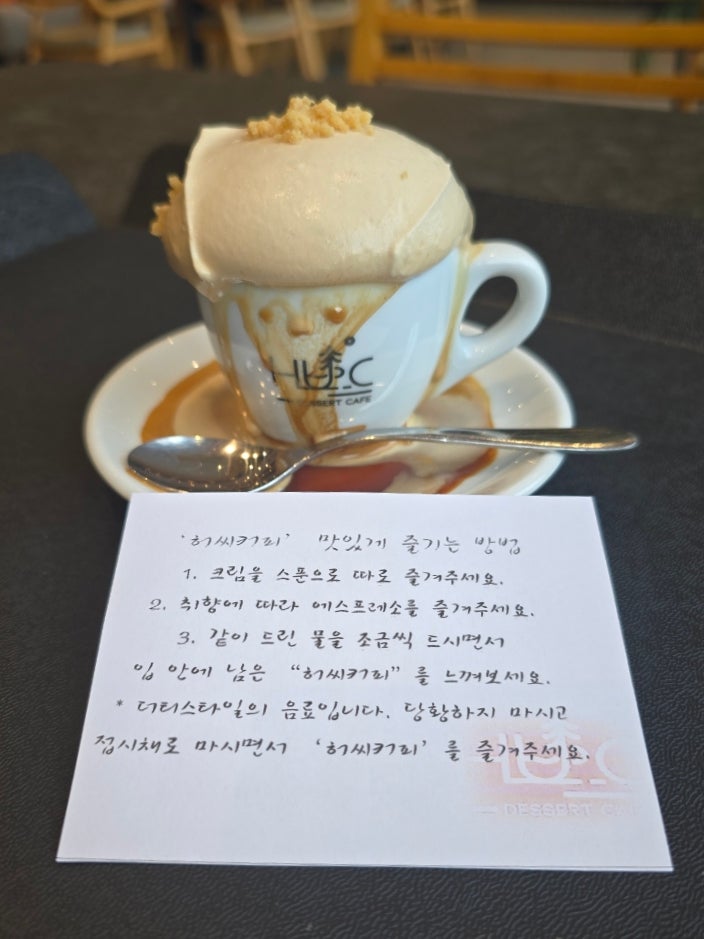 HU_C
DESSERT CAFE
'허씨커피' 맛있게 즐기는 방법
1. 크림을 스푼으로 따로 즐겨주세요.
2. 취향에 따라 에스프레소를 즐겨주세요.
3. 같이 드린 물을 조금씩 드시면서
입 안에 남은 "허씨커피"를 느껴보세요.
* 더티스타일의 음료입니다. 당황하지 마시고
접시채로 마시면서 '허씨커피'를 즐겨주세요.
DESSERT CAFE